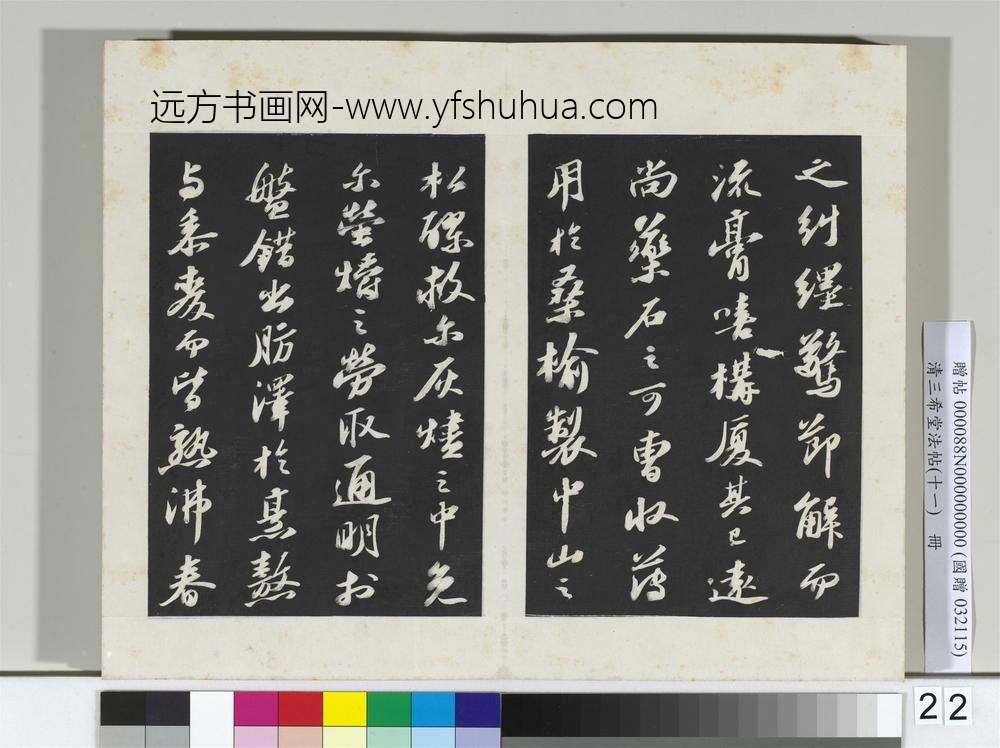 远方书画网-www.yfshuhua.com
之糾纆驚節解而
流膏嘻構厦其已遠
尚藥石之可曹收薄
用於桑榆製中山之
松醪救尔灰燼之中免
尔螢爝之勞取通明於
盤錯出肪澤於烹熬
与黍麦而皆熟沸舂
贈帖 000088N000000000 (國贈 032115)
清三希堂法帖(十一) 冊
22